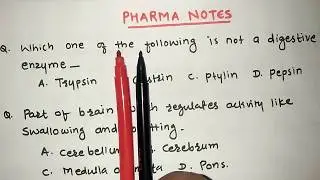 PHARMA NOTES
Q. Which one of the following is not a digestive
enzyme _
A. Trypsin strin C. Ptylin D. Pepsin
Q. Part of brain which regulates activity like
Swallowing and ting -
A. Cerebellum . Cerebrum
C. Medulla o ta D. Pons.